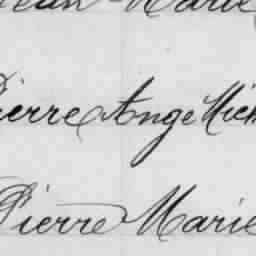 Jean-Marie
Pierre Ange Mich
Pierre Marie